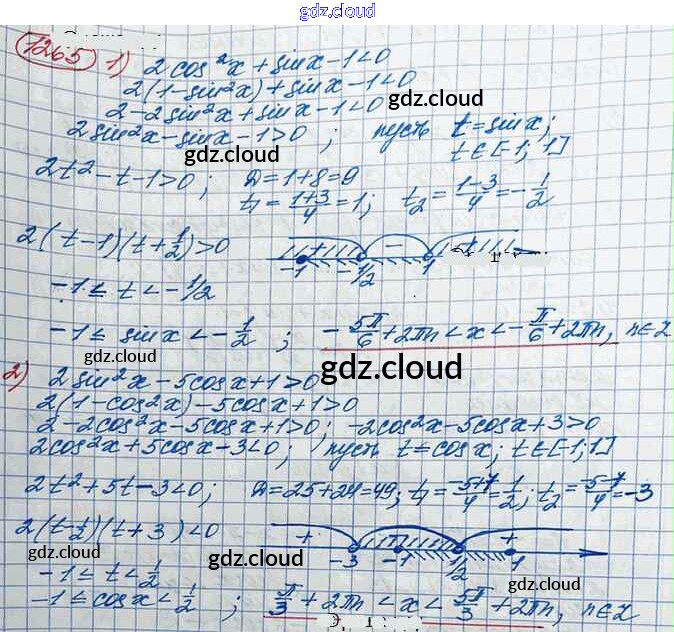 gdz.cloud
1265) 1) 2cos²x + sinx - 1 < 0
2(1-sin²x) + sinx - 1 < 0
2 - 2sin²x + sinx - 1 < 0
gdz.cloud
2sin²x - sinx - 1 > 0 ; пусть t = sinx;
t ∈ [-1; 1]
gdz.cloud
2t² - t - 1 > 0 ; D = 1+8 = 9
t₁ = (1+3)/4 = 1; t₂ = (1-3)/4 = -1/2
2(t-1)(t+1/2) > 0
+ - +
-1 -1/2 1
-1 ≤ t < -1/2
-1 ≤ sinx < -1/2 ; -5π/6 + 2πn < x < -π/6 + 2πn, n∈Z
gdz.cloud gdz.cloud
2) 2sin²x - 5cosx + 1 > 0
gdz.cloud
2(1-cos²x) - 5cosx + 1 > 0
2 - 2cos²x - 5cosx + 1 > 0; -2cos²x - 5cosx + 3 > 0
2cos²x + 5cosx - 3 < 0; пусть t = cosx; t ∈ [-1; 1]
2t² + 5t - 3 < 0; D = 25+24 = 49; t₁ = (-5+7)/4 = 1/2; t₂ = (-5-7)/4 = -3
2(t-1/2)(t+3) < 0
+ +
-3 -1 1/2 1
gdz.cloud gdz.cloud
-1 ≤ t < 1/2
-1 ≤ cosx < 1/2 ; π/3 + 2πn < x < 5π/3 + 2πn, n∈Z
gdz.cloud